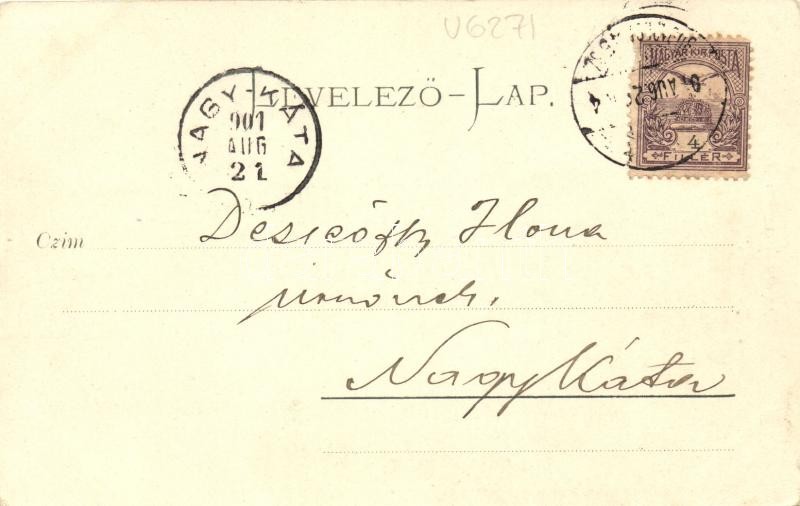 V6271
LEVELEZŐ-LAP.
NAGY-KÁTA
901
AUG
21
MAGYAR KIR. POSTA
4
FILLÉR
4
Czim
Ilona
úrnőnek.
NagyKáta